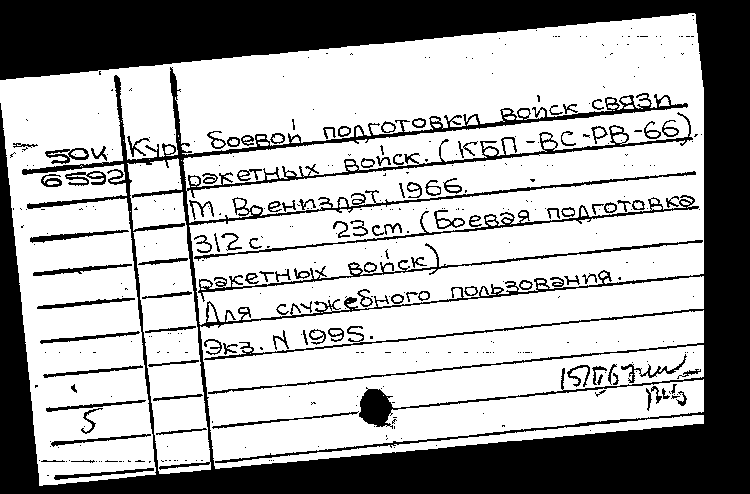 50к Курс боевой подготовки войск связи
6592 ракетных войск. (КБП-ВС-РВ-66).
М., Воениздат, 1966.
312 с. 23 cm. (Боевая подготовка
ракетных войск)
Для служебного пользования.
Экз. N 1995.
5